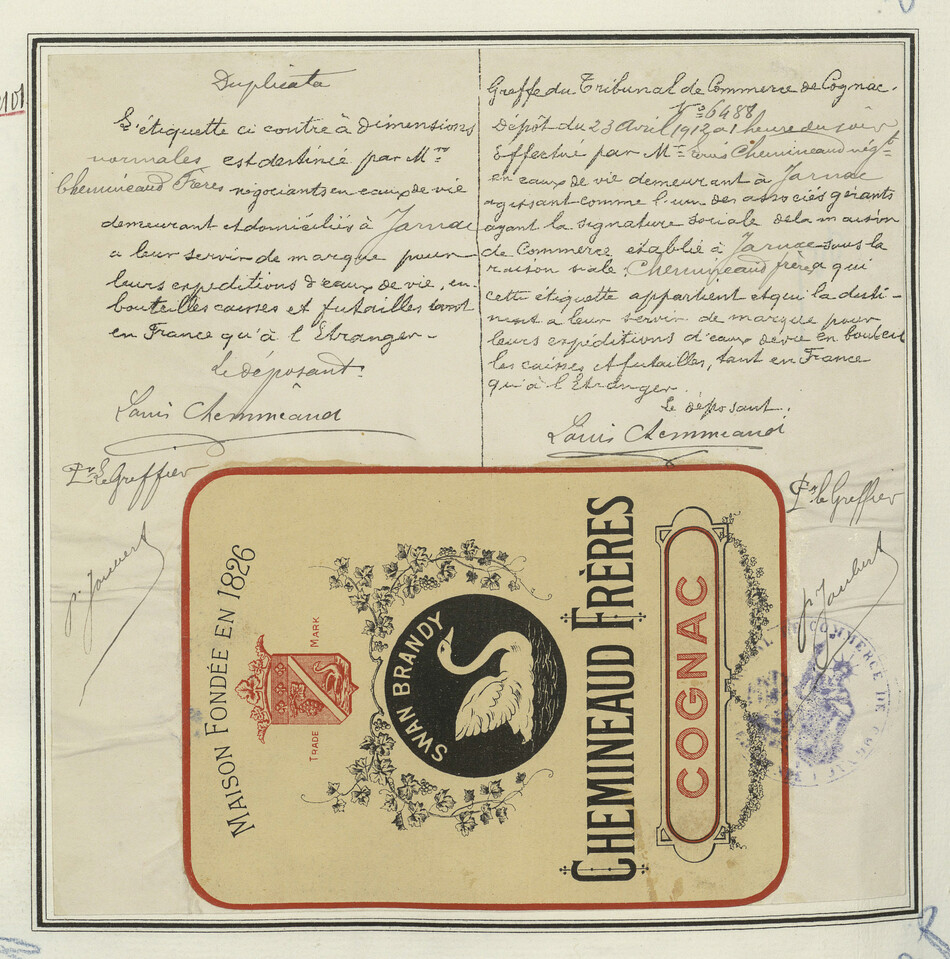 Duplicata
L'étiquette ci contre à dimensions
normales est destinée par Mrs
Chemineaud Frères négociants en eaux de vie
demeurant et domiciliés à Jarnac
a leur servir de marque pour
leurs expéditions d'eaux de vie, en
bouteilles caisses et futailles tant
en France qu'à l'Etranger.
Le déposant
Louis Chemineaud
Pr Le Greffier
P. Joubert
Greffe du Tribunal de Commerce de Cognac.
No 6488
Dépôt du 23 Avril 1912 à 1 heure du soir
Effectué par Mr Louis Chemineaud négt
en eaux de vie demeurant à Jarnac
agissant comme l'un des associés gérants
ayant la signature sociale de la maison
de Commerce etablie à Jarnac sous la
raison siale Chemineaud frères a qui
cette étiquette appartient et qui la desti-
nent a leur servir de marque pour
leurs expéditions d'eaux de vie en bouteil
les caisses et futailles, tant en France
qu'à l'Etranger.
Le déposant.
Louis Chemineaud
Pr le Greffier
P. Joubert
MAISON FONDÉE EN 1826
TRADE MARK
SWAN BRANDY
CHEMINEAUD FRÈRES
COGNAC